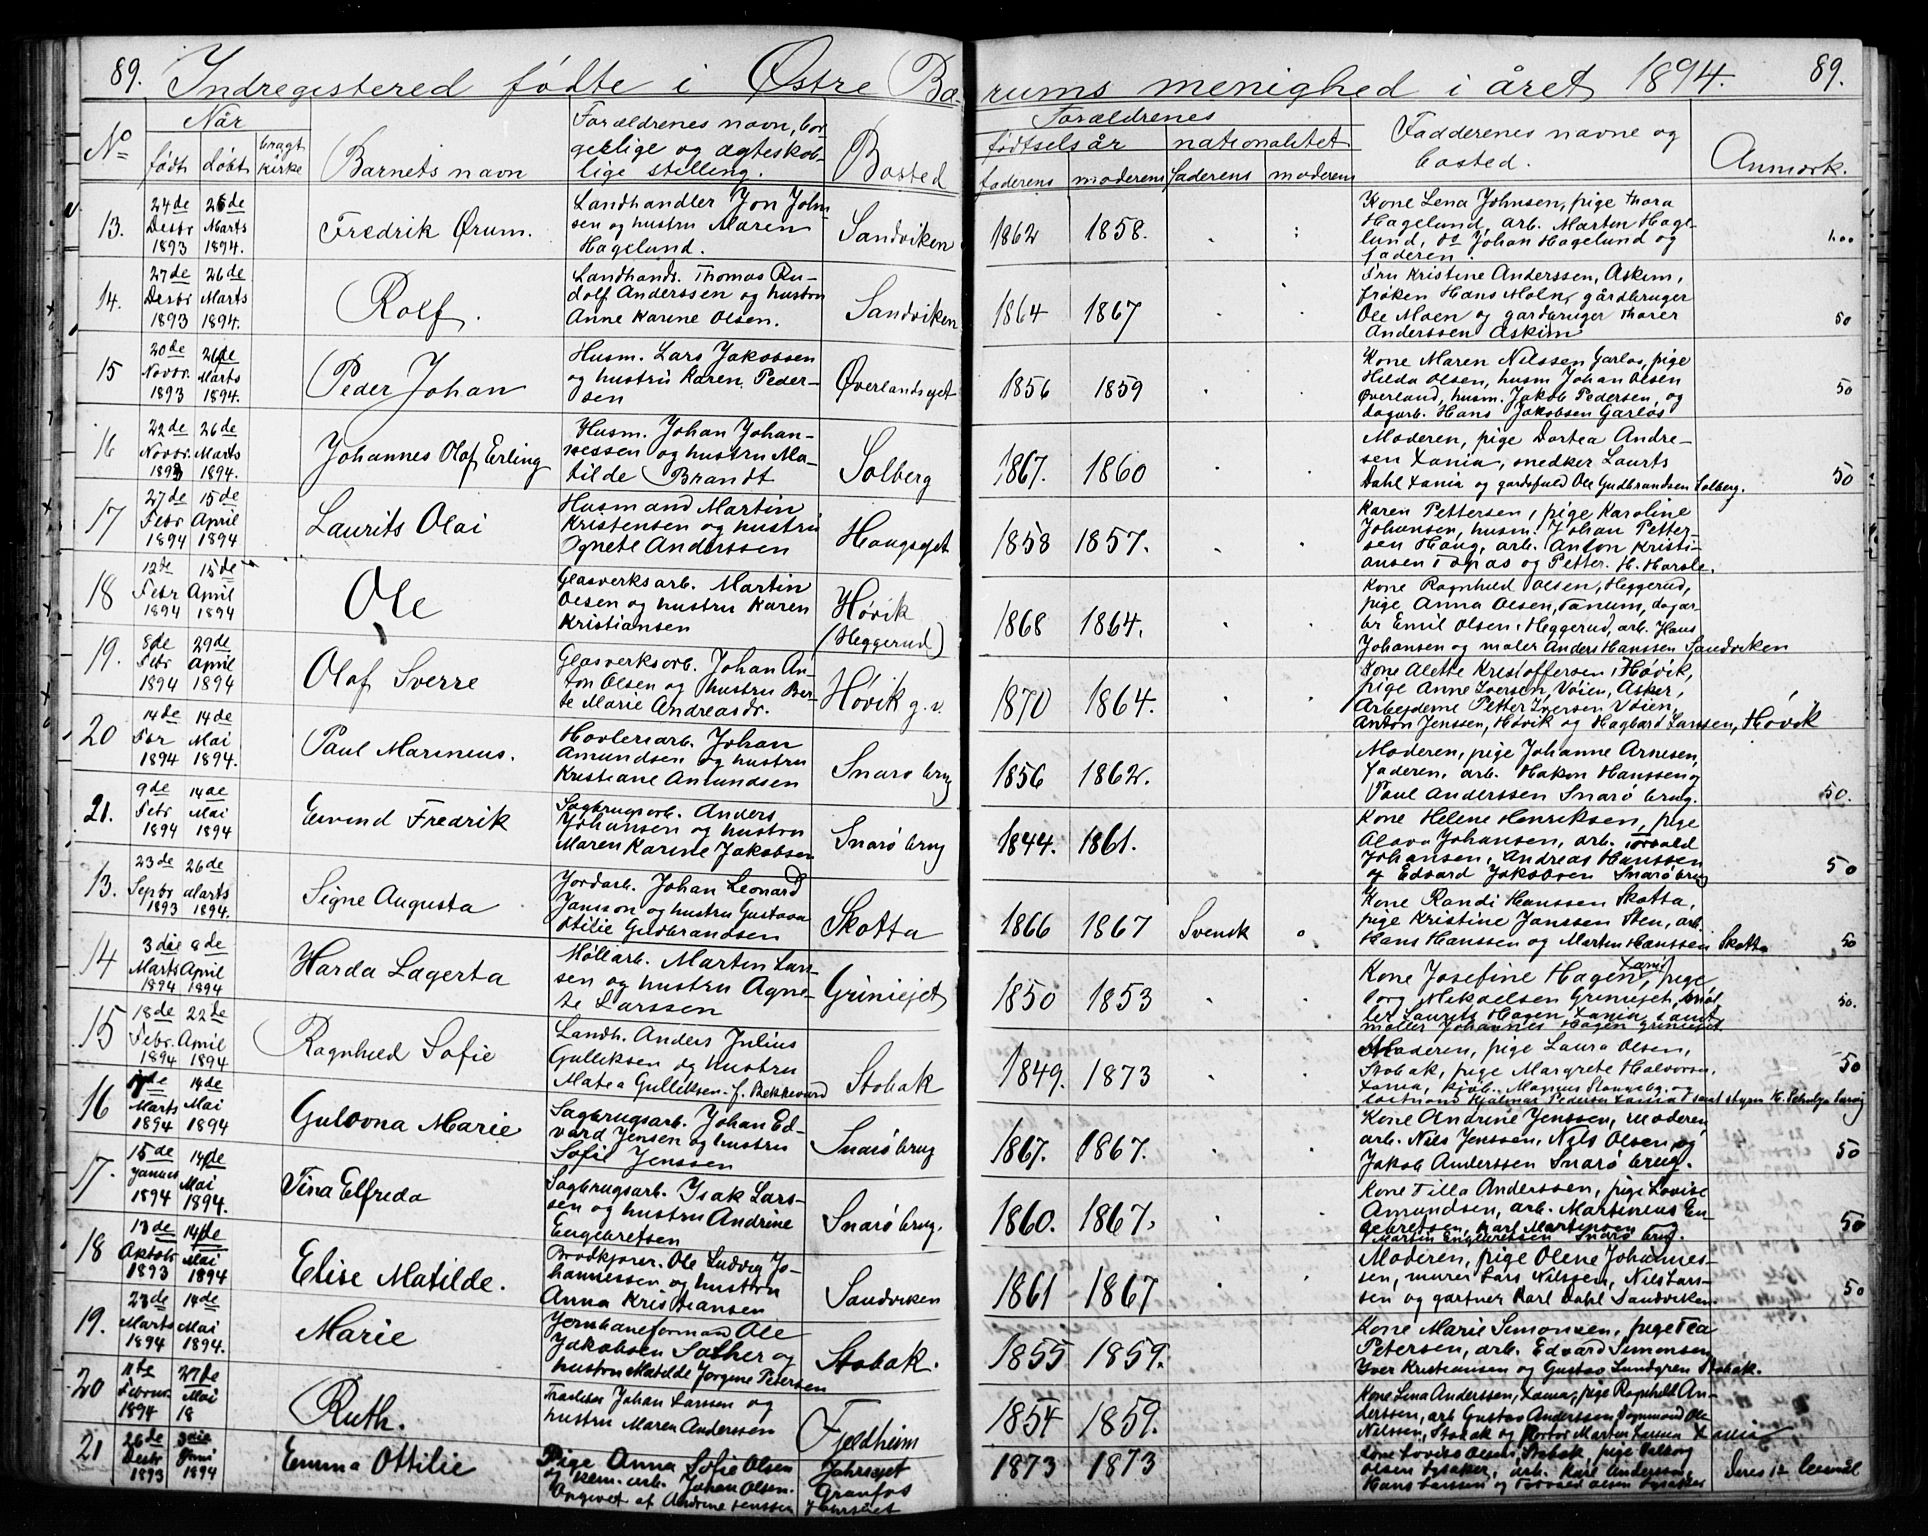 89. Indregistered fødte i Østre Bærums menighed i året 1894. 89.
No Når Barnets navn Forældrenes navn, borgerlige og ægteskabelige stilling. Bosted Forældrenes Fadderenes navne og bosted. Anmærk.
født døbt bragt kirke fødselsår nationalitet
faderens moderens faderens moderens
13. 24de Desbr 1893 26de Marts 1894. Fredrik Ørum. Landhandler Jon John-
sen og hustru Maren
Hagelund. Sandviken 1862 1858. Kone Lena Johnsen, pige Thora
Hagelund, arb. Marten Hage-
lund, do Johan Hagelund og
faderen.
14. 27de Desbr 1893 26de Marts 1894. Rolf. Landhandl. Thomas Ru-
dolf Anderssen og hustru
Anne Karine Olsen. Sandviken 1864 1867 Fru Kristine Anderssen, Askim,
frøken Hans Moen, gårdbruger
Ole Moen og gardbruger Thorer
Anderssen Askim 50
15 20de Novbr. 1893 26de Marts 1894. Peder Johan Husm. Lars Jakobsen
og hustru Karen Peder-
sen Øverlandsejet 1856 1859 Kone Maren Nilssen Garløs, pige
Hilda Olsen, husm Johan Olsen
Øverland, husm. Jakob Pedersen, og
dagarb. Hans Jakobsen Garløs 50
16 22de Novbr. 1893 26de Marts 1894. Johannes Olaf Erling Husm. Johan Johan-
nessen og hustru Ma-
tilde Brandt Solberg 1867. 1860 Moderen, pige Dortea Andre-
sen Xania, snedker Laurts
Dahl Xania og Ole Gudbrandsen Solberg. 50
17 27de Febr 1894 15de April 1894 Laurits Olai Husmand Martin
Kristensen og hustru
Agnete Anderssen Haugsejet 1858 1857. Karen Pettersen, pige Karoline
Johansen, husm. Johan Petter-
sen Haug, arb. Anton Kristi-
ansen Topas og Petter. H. Horsle.
18 12de Febr 1894 15de April 1894 Ole Glasverksarb. Martin
Olsen og hustru Karen
Kristiansen Høvik
(Heggerud) 1868 1864. Kone Ragnhild Olsen, Heggerud,
pige Anna Olsen, Tanum, dagar-
br Emil Olsen, Heggerud, arb. Hans
Johansen og maler Anders Hanssen Sandviken
19. 8de Febr 1894 29de April 1894 Olaf Sverre Glasverksarb. Johan An-
ton Olsen og hustru Ber-
te Marie Andreasdr. Høvik g.v. 1870 1864. Kone Alette Kristoffersen Høvik,
pige Anne Iversen, Vøien, Asker,
Arbejderne Petter Iversen Vøien,
Anton Jenssen, Høvik og Hagbard Larssen, Høvik
20 14de Febr 1894 14de Mai 1894. Paul Marinius. Høvleriarb. Johan
Amundsen og hustru
Kristiane Amundsen Snarøbrug 1856 1862. Moderen, pige Johanne Arnesen,
faderen, arb. Hakon Hanssen og
Paul Anderssen Snarø brug. 50.
21. 9de Febr 1894 14de Mai 1894 Eivind Fredrik Sagbrugsarb. Anders
Johansen og hustru
Maren Karine Jakobsen Snarø brug 1844. 1861. Kone Helene Henriksen, pige
Olava Johansen, arb. Torvald
Johansen, Andreas Hanssen
og Edvard Jakobsen Snarøbrug 50
13. 23de Sepbr 1893 26de Marts 1894. Signe Augusta Jordarb. Johan Leonard
Jansson og hustru Gustava
Otilie Gudbrandsen Skotta 1866 1867 Svensk Kone Randi Hanssen Skotta,
pige Kristine Janssen Sten, arb.
Hans Hanssen og Martin Hanssen Skotta 50
14 3die Marts 1894 8de April 1894 Harda Lagerta Møllarb. Martin Lars-
sen og hustru Agne-
te Larssen Griniejet 1850 1853 Kone Josefine Hagen, Xania, pige
Mikaelsen Griniejet, møl-
ler Laurits Hagen Xania samt
møller Johannes Hagen Griniejet 50.
15 18de Febr. 1894 22de April 1894 Ragnhild Sofie Landh. Anders Julius
Gulliksen og hustru
Matea Gulliksen f. Bekkevard Stabak 1849. 1873 Moderen, pige Laura Olsen,
Stabak, pige Margrete Halvorsen
Xania, kjøb. Magnus Stangeby og
Hjalmar Pedersen Xania samt 50
16 Marts 1894 14de Mai 1894 Gulovna Marie Sagbrugsarb. Johan Ed-
vard Jensen og hustru
Sofie Jenssen Snarøbrug 1867. 1867. Kone Andrine Jenssen, moderen
arb. Nils Jenssen, Nils Olsen og
Jakob Anderssen Snarø brug. 50
17. 15de Januar 1894 14de Mai 1894. Tina Elfreda Sagbrugsarb. Isak Lars-
sen og hustru Andrine
Engebretsen Snarøbrug. 1860. 1867. Kone Tilla Anderssen, pige Lovise
Amundsen, arb. Martinius En-
gebretsen, Karl Martinsen og
Martin Engebretsen Snarø brug. 50
18 13de Oktobr 1893 14de Mai 1894 Elise Matilde. Brødkjører. Ole Ludvig Jo-
hannessen og hustru
Anna Kristiansen Sandviken 1861 1867 Moderen, pige Olene Johannes-
sen, murer Lars Nilssen, Nils Lars-
sen og gartner Karl Dahl Sandviken. 50
19. 23de Marts 1894 14de Mai 1894. Marie Jernbaneformand Ole
Jakobsen Sæther og
hustru Matilde Jørgine Petersen Stabak. 1855 1859. Kone Marie Simonsen, pige Tea
Petersen, arb. Edvard Simonsen
Iver Kristiansen og Gustav Lundgren Stabak.
20 11te Februar 1894 27de Mai 18 Ruth. Johan Larssen og
hustru Maren Anderssen Fjeldheim 1854 1859. Kone Lina Anderssen, Xania, pige Ragnhild An-
derssen, arb Gustav Anderssen, Ole
Nilssen, Stabak og Martin Xania
21 26de Desbr 1893 3die Juni 1894 Emma Ottilie Pige Anna Sofie Olsen
og kem. arb. Johan Olsen.
Opgivet af Andrine Jenssen Jahrsejet
Granfos
Jahrsejet 1873 1873 Kone Lovise Olsen Stabak, pige Valborg
Olsen Lysaker, arb. Karl Anderssen,
Hans Larssen og Torvald Olsen Lysaker Deres 1ste leiemål